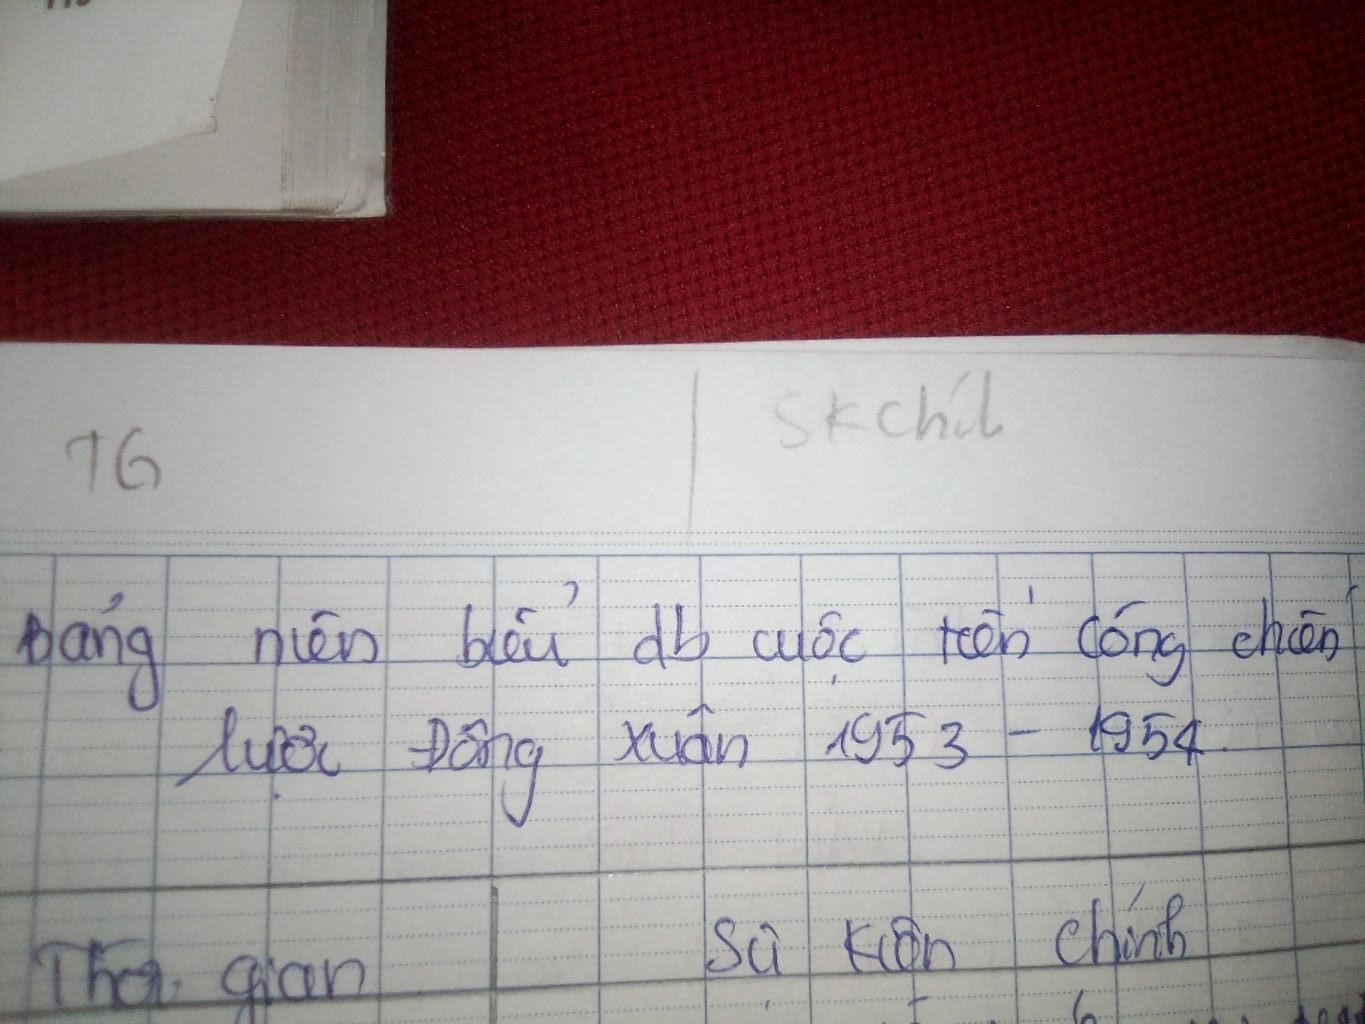 TG
SK chí
Bảng niên biểu db cuộc tiến công chiến
lược Đông xuân 1953 - 1954
Thời gian
Sự kiện chính